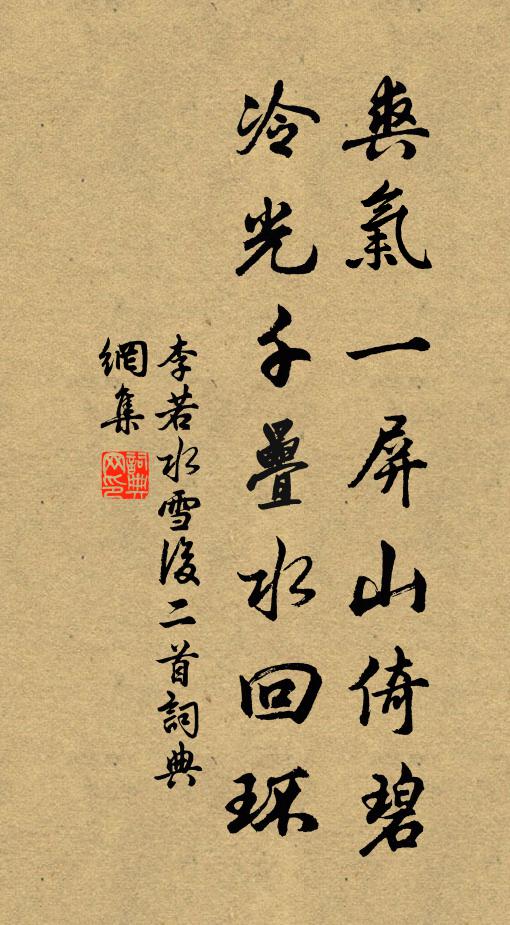 爽氣一屏山倚碧
冷光千疊水回环
李若水雪後二首詞典
網集
詞典网印